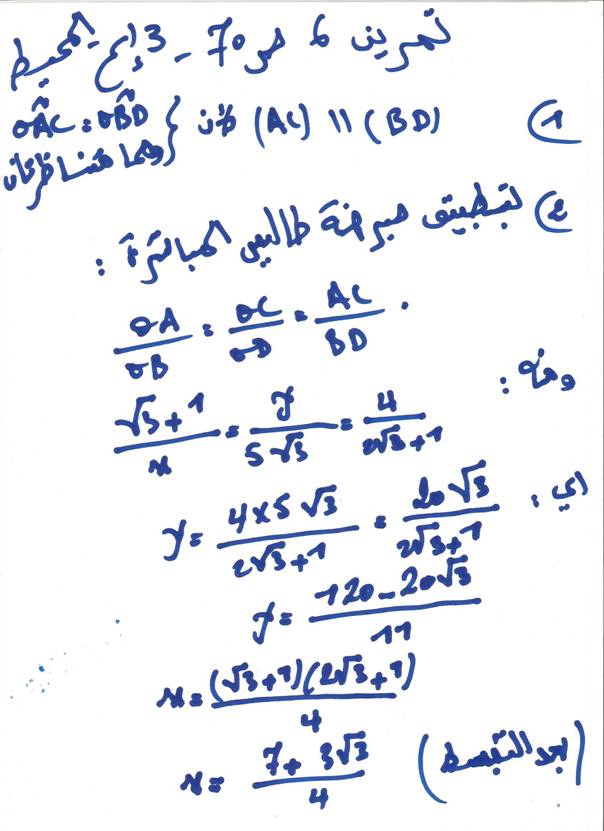 تمرين 6 ص 70 - 3 إع - المحيط
1) (AC) // (BD) لأن { OÂC = OB̂D
وهما متناظرتان
2) بتطبيق مبرهنة طاليس المباشرة :
OA/OB = OC/OD = AC/BD .
ومنه :
(√3+1)/x = y/(5√3) = 4/(2√3+1)
أي : y = (4×5√3)/(2√3+1) = (20√3)/(2√3+1)
y = (120-20√3)/11
x = ((√3+1)(2√3+1))/4
x = (7+3√3)/4 (بعد التبسيط)